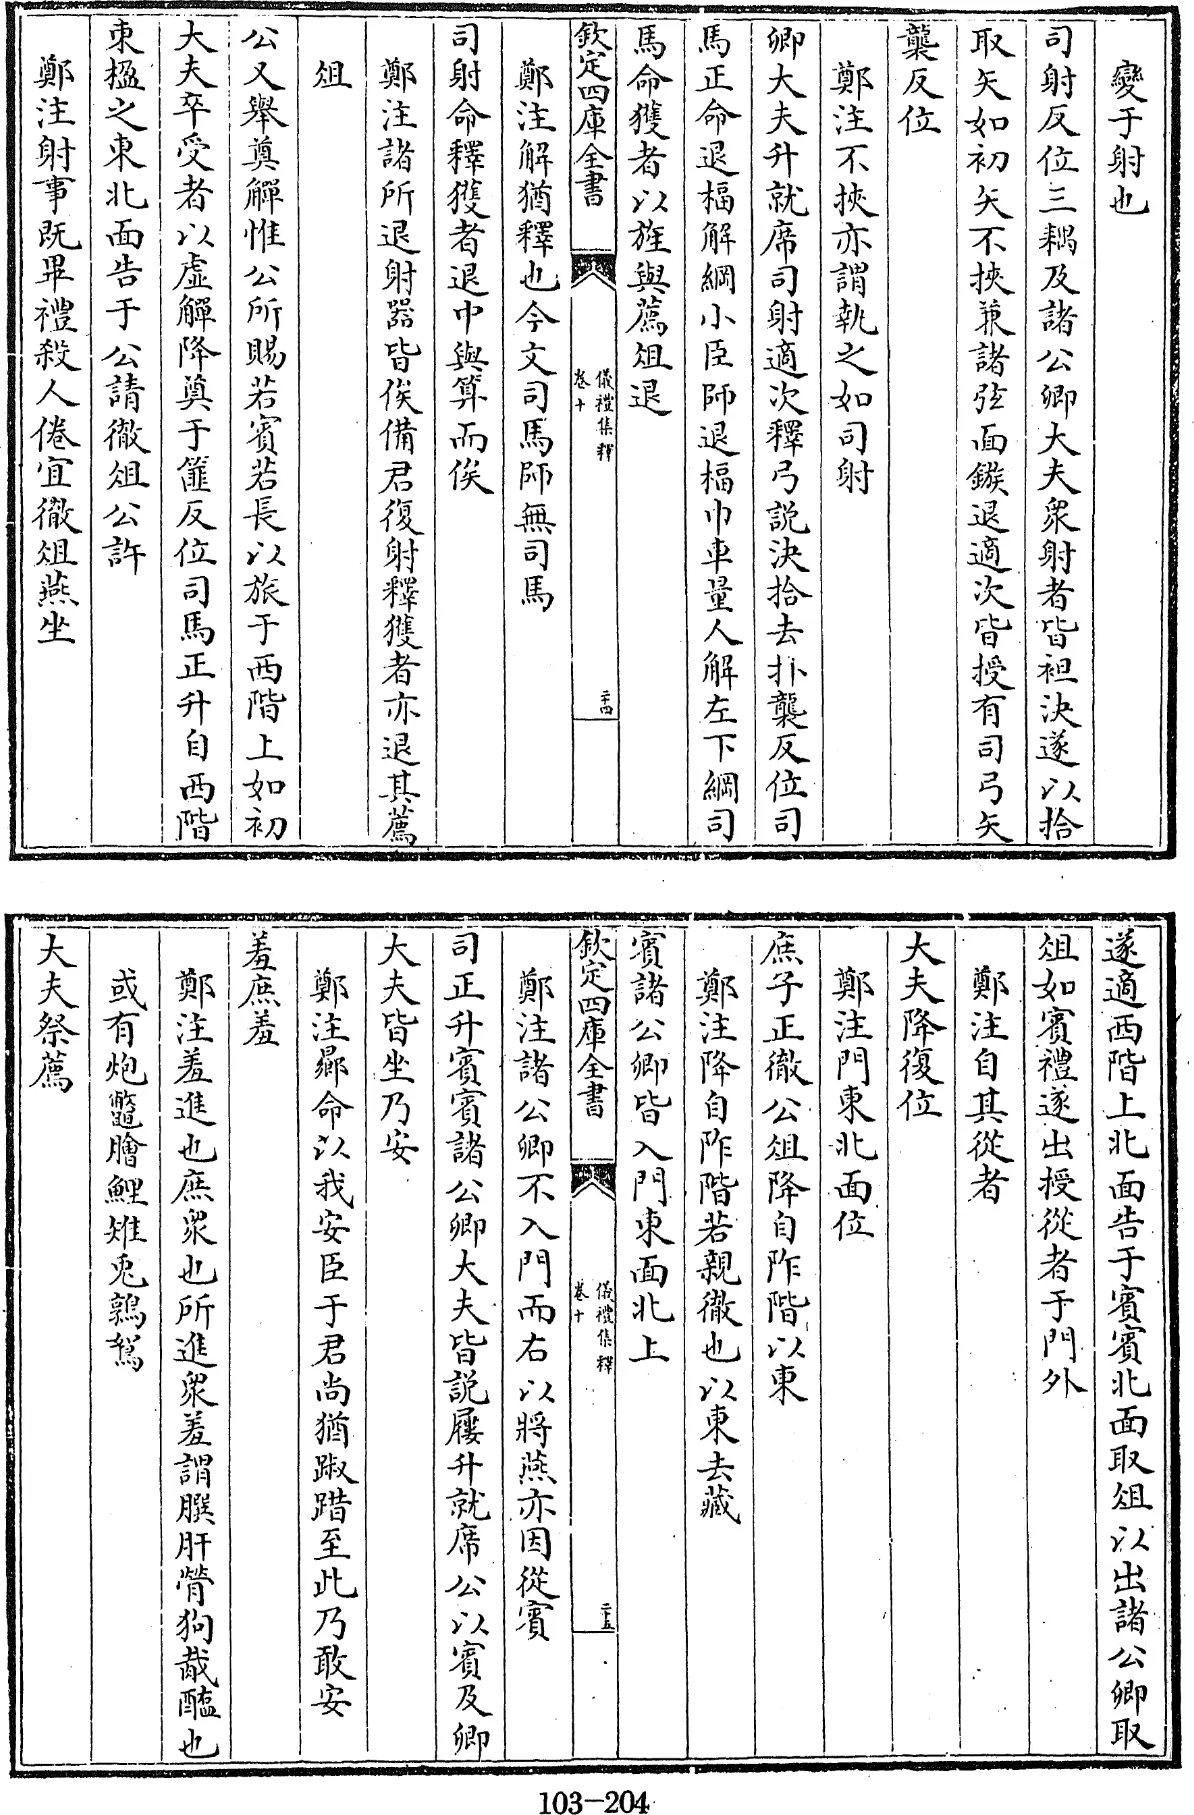 變于射也
司射反位三耦及諸公卿大夫衆射者皆袒決遂以拾
取矢如初矢不挾兼諸弦面鏃退適次皆授有司弓矢
襲反位
鄭注不挾亦謂執之如司射
卿大夫升就席司射適次釋弓説決拾去扑襲反位司
馬正命退楅解綱小臣師退楅巾車量人解左下綱司
馬命獲者以旌與薦俎退
欽定四庫全書
儀禮集釋
卷十
二十四
鄭注解猶釋也今文司馬師無司馬
司射命釋獲者退中與算而俟
鄭注諸所退射器皆俟備君復射釋獲者亦退其薦
俎
公又舉奠觶惟公所賜若賓若長以旅于西階上如初
大夫卒受者以虛觶降奠于篚反位司馬正升自西階
東楹之東北面告于公請徹俎公許
鄭注射事既畢禮殺人倦宜徹俎燕坐
遂適西階上北面告于賓賓北面取俎以出諸公卿取
俎如賓禮遂出授從者于門外
鄭注自其從者
大夫降復位
鄭注門東北面位
庶子正徹公俎降自阼階以東
鄭注降自阼階若親徹也以東去藏
賓諸公卿皆入門東面北上
欽定四庫全書
儀禮集釋
卷十
二十五
鄭注諸公卿不入門而右以將燕亦因從賓
司正升賓賓諸公卿大夫皆説屨升就席公以賓及卿
大夫皆坐乃安
鄭注曏命以我安臣于君尚猶踧踖至此乃敢安
羞庶羞
鄭注羞進也庶衆也所進衆羞謂膷肝膋狗胾醢也
或有炮鼈膾鯉雉兎鶉鴽
大夫祭薦
103-204